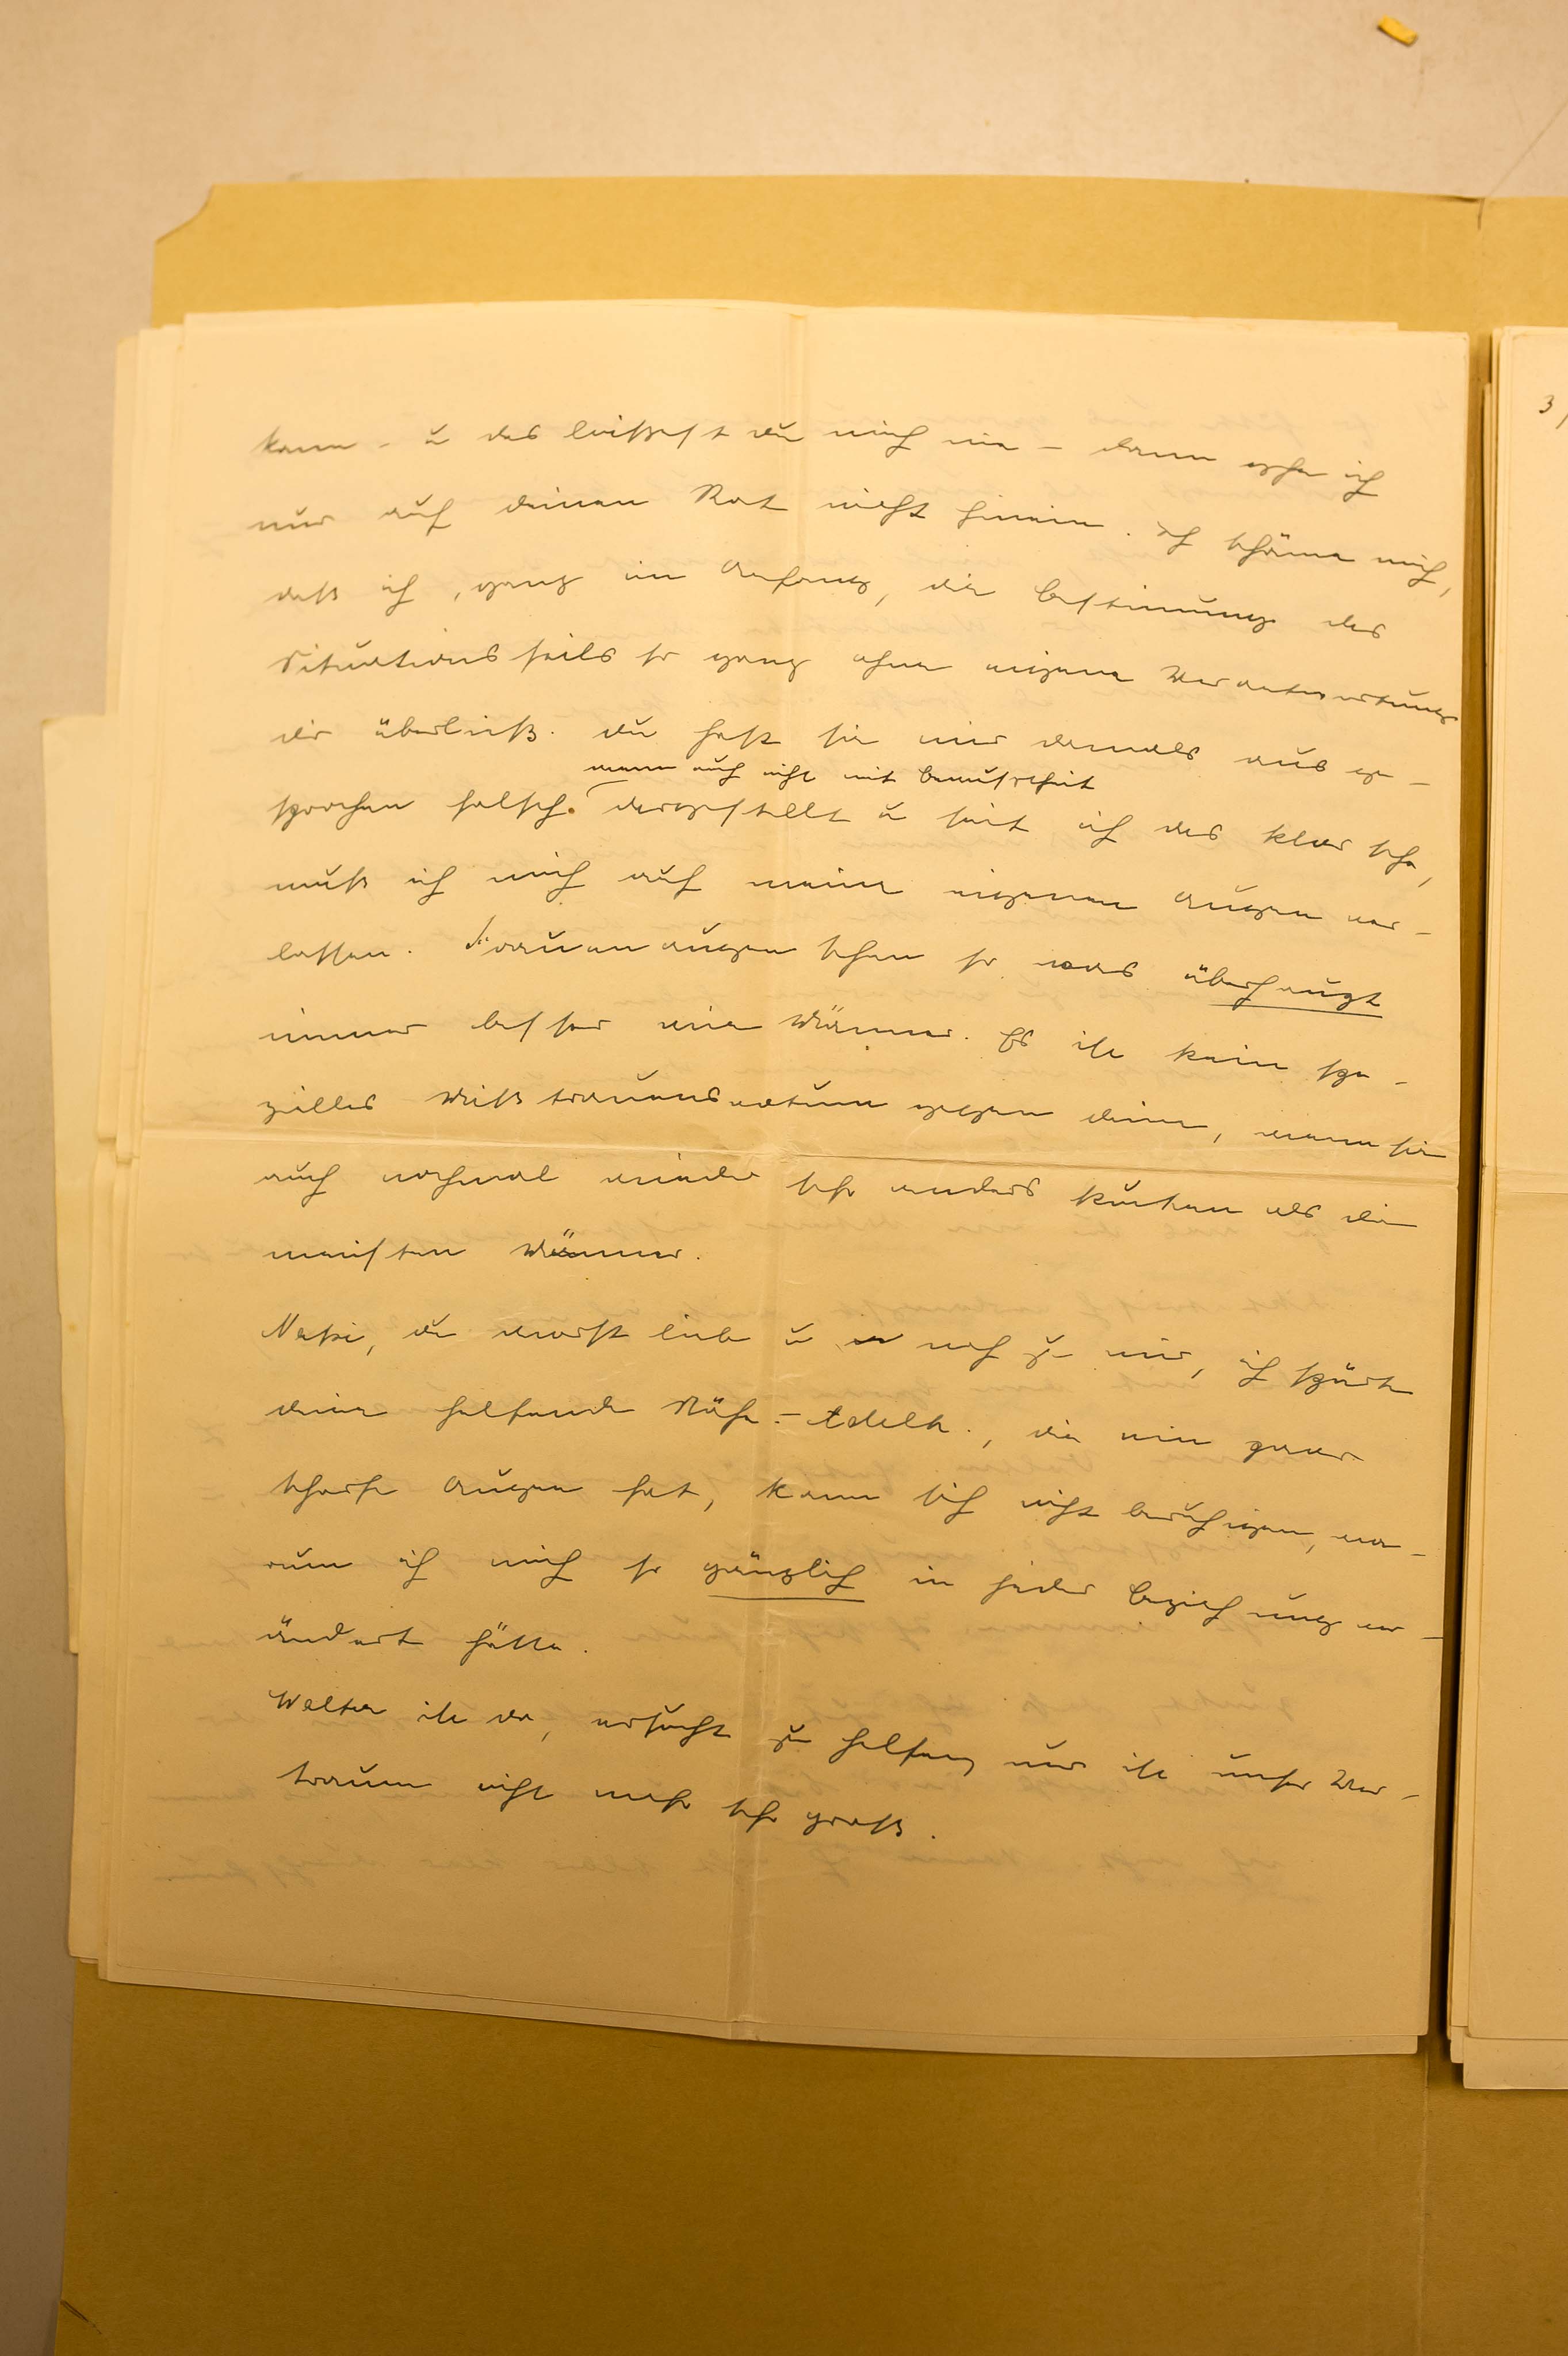 kann – u das beischst du mich nie – dann gehe ich
nur auf deinen Rat nicht hinein. Ich schäme mich,
daß ich, ganz im Anfang, die Bestimmung des
Situationsteils so ganz ohne eigene Verantwortung
dir überließ. du hast sie mir damals ausge-
wenn auch nicht mit Bewußtheit
sprochen falsch dargestellt u seit ich das klar sehe,
muß ich mich auf meine eigenen Augen ver-
lassen. Frauenaugen sehen so was überhaupt
immer besser wie Männer. Es ist kein spe-
zielles Mißtrauensvotum gegen deine, wenn sie
auch nochmal wieder sehr anders kucken als die
meisten Männer.
du warst lieb u nah zu mir, ich spürte
deine helfende Nähe – die ein paar
scharfe Augen hat, kann sich nicht beruhigen, wa-
rum ich mich so gänzlich in jeder Beziehung ver-
ändert hätte.
Walter ist da, versucht zu helfen, nur ist unser Ver-
trauen nicht mehr sehr groß.
3/